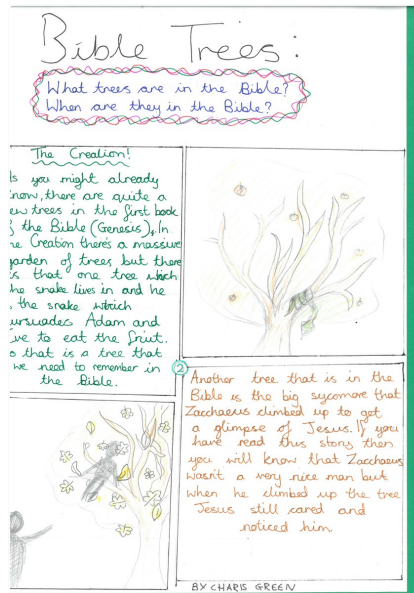 Bible Trees:
What trees are in the Bible?
When are they in the Bible?
The Creation!
s you might already
now, there are quite a
ew trees in the first book
the Bible (Genesis). In
e Creation there's a massive
garden of trees but there
is that one tree which
he snake lives in and he
, the snake which
ursuades Adam and
ve to eat the fruit.
o that is a tree that
we need to remember in
the Bible.
2
Another tree that is in the
Bible is the big sycomore that
Zacchaeus climbed up to get
a glimpse of Jesus. If you
have read this story then
you will know that Zacchaeus
wasn't a very nice man but
when he climbed up the tree
Jesus still cared and
noticed him.
BY CHARIS GREEN